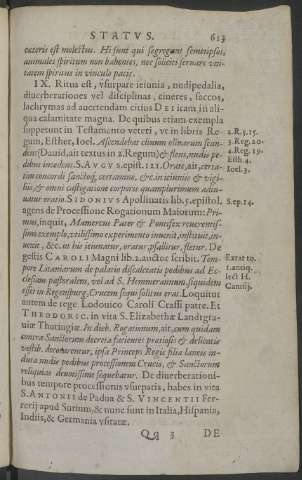 STATVS. 613
cæteris est molestus. Hi sunt qui segregant semetipsos,
animales spiritum non habentes, nec soliciti servare uni-
tatem spiritus in vinculo pacis.
IX. Ritus est, vsurpare ieiunia, nudipedalia,
diuerberationes vel disciplinas, cineres, saccos,
lachrymas ad auertendam citius DEI iram, in ali-
qua calamitate magna. De quibus etiam exempla
suppetunt in Testamento veteri, vt in libris Re-
gum, Esther, Ioel. Ascendebat clivum olivarum scan-
dens (Dauid, ait textus in 2. Regum) & flens, nudis pe-
dibus incedens. S. AVGVS. epist. 121. Orate, ait, certa-
tim concordi sanctoq; certamine, & in ieiuniis & vigi-
liis, & omni castigatione corporis quamplurimum adiu-
uatur oratio. SIDONIVS Apollinaris lib. 5. epistol.
agens de Processione Rogationum Maiorum: Pri-
mus, inquit, Mamercus Pater & Pontifex reuerentis-
simo exemplo, vtilissimo experimento inuenit, instituit, in-
uexit, &c. in his ieiunatur, oratur, psallitur, fletur. De
gestis CAROLI Magni lib. 2. auctor scribit. Tem-
pore Letaniarum de palatio discalceatis pedibus ad Ec-
clesiam pastoralem, vel ad S. Hemmerammum, siquidem
esset in Regensburg, Crucem sequi solitus erat. Loquitur
autem de rege Lodouico Caroli Crassi patre. Et
THEODORIC. in vita S. Elizabethæ Landtgra-
uiæ Thuringiæ. In dieb. Rogationum, ait, cum quidam
contra Sanctorum decreta facientes pretiosis & delicatis
vestib. decorarentur, ipsa Princeps Regis filia laneis in-
duta nudis pedibus processionem Crucis, & Sanctorum
reliquias deuotissime sequebatur. De diuerberationi-
bus tempore processionis vsurpatis, habes in vita
S. ANTONII de Padua & S. VINCENTII Fer-
rerij apud Surium, & nunc sunt in Italia, Hispania,
Indiis, & Germania vsitatæ.
Qq 3 DE
2. R. 3. 15.
3. Reg. 20.
4. Reg. 19.
Esth. 4.
Ioel. 3.
S. ep. 14.
Extat to.
1. antiq.
lect. H.
Canisij.